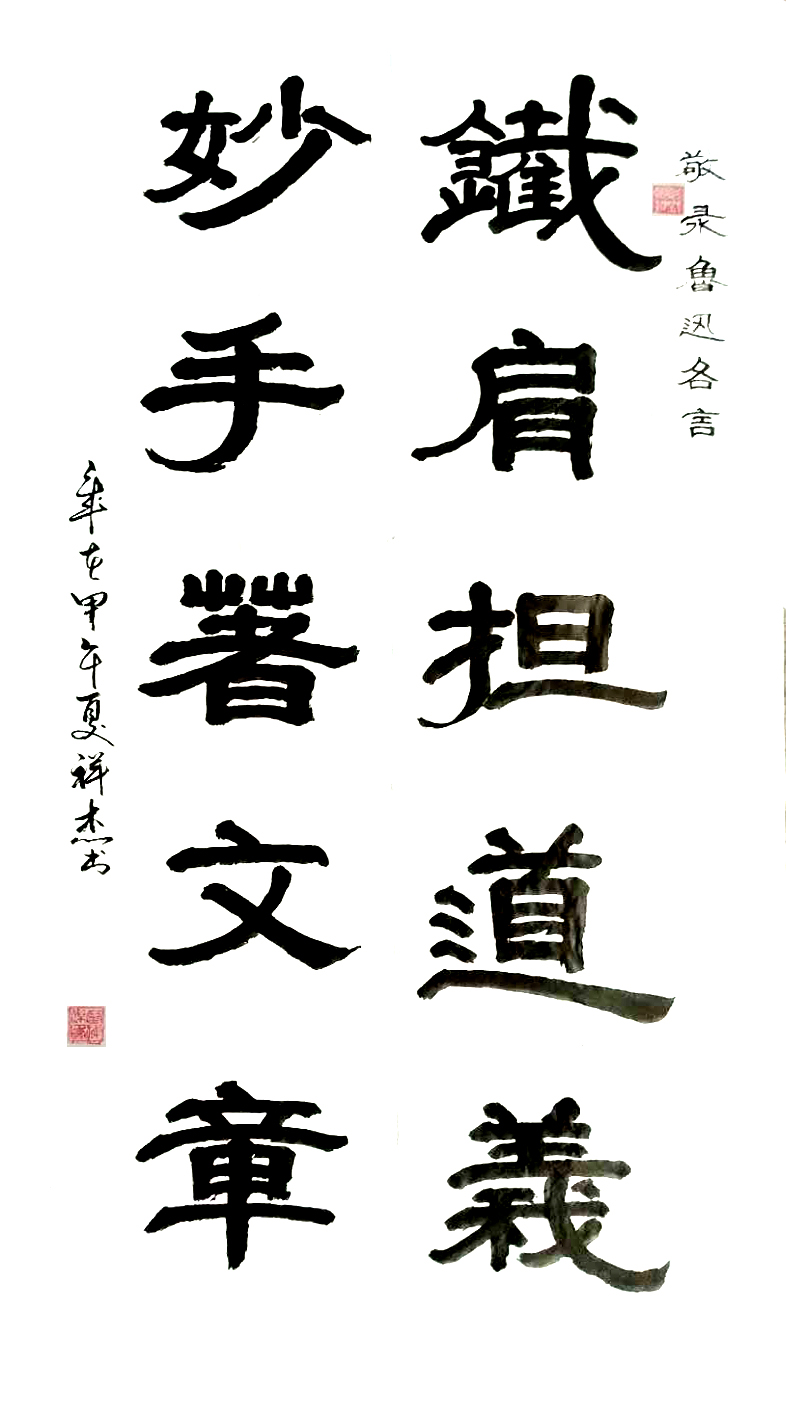 敬录魯迅名言
鐵肩担道義
妙手著文章
歲在甲午夏祥杰书